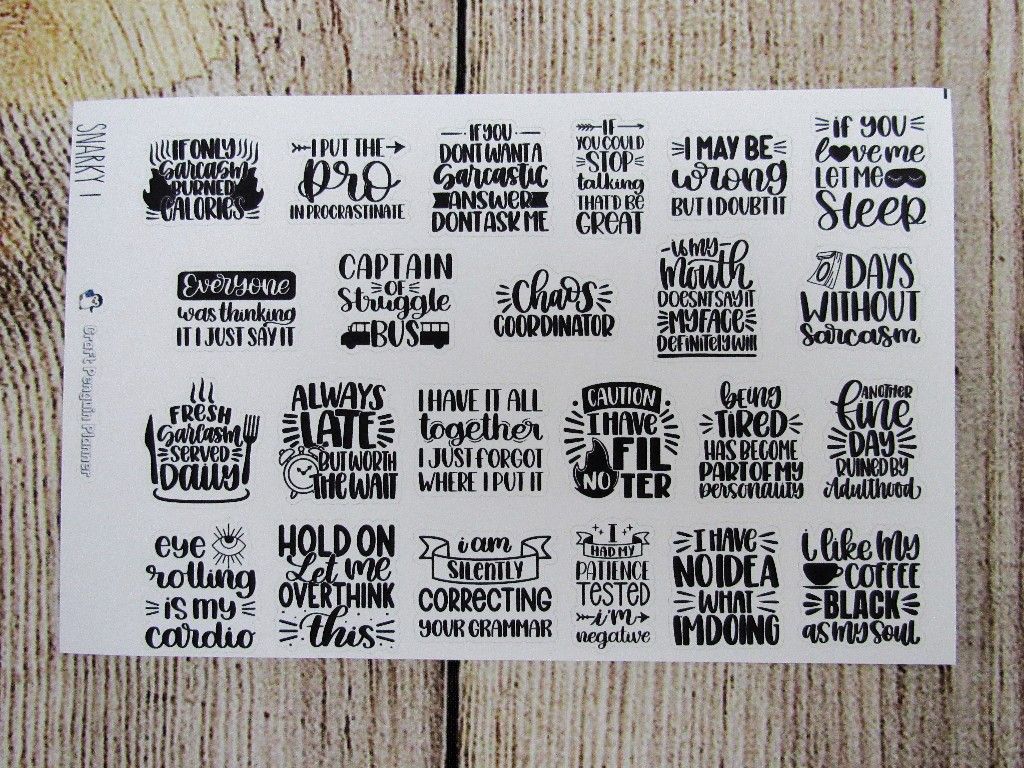 SNARKY 1
Craft Penguin Planner
IF ONLY
Sarcasm
BURNED
CALORIES
I PUT THE
pro
IN PROCRASTINATE
IF YOU
DONT WANT A
Sarcastic
ANSWER
DONT ASK ME
IF
YOU COULD
STOP
talking
THAT'D BE
GREAT
I MAY BE
wrong
BUT I DOUBT IT
if YOU
love me
LET ME
Sleep
Everyone
was thinking
IT I JUST SAY IT
CAPTAIN
OF
Struggle
BUS
Chaos
COORDINATOR
is my
Mouth
DOESNT SAY IT
MY FACE
DEFINITELY WILL
0 DAYS
WITHOUT
Sarcasm
FRESH
Sarcasm
SERVED
DAILY
ALWAYS
LATE
BUT WORTH
THE WAIT
I HAVE IT ALL
together
I JUST FORGOT
WHERE I PUT IT
CAUTION
I HAVE
NO FIL
TER
being
TIRED
HAS BECOME
PART OF MY
personality
ANOTHER
fine
DAY
RUINED BY
Adulthood
eye
rolling
is my
cardio
HOLD ON
Let me
OVERTHINK
this
i am
SILENTLY
CORRECTING
YOUR GRAMMAR
I
HAD MY
PATIENCE
TESTED
i'm
negative
I HAVE
NO IDEA
WHAT
IM DOING
i like my
COFFEE
BLACK
as my soul